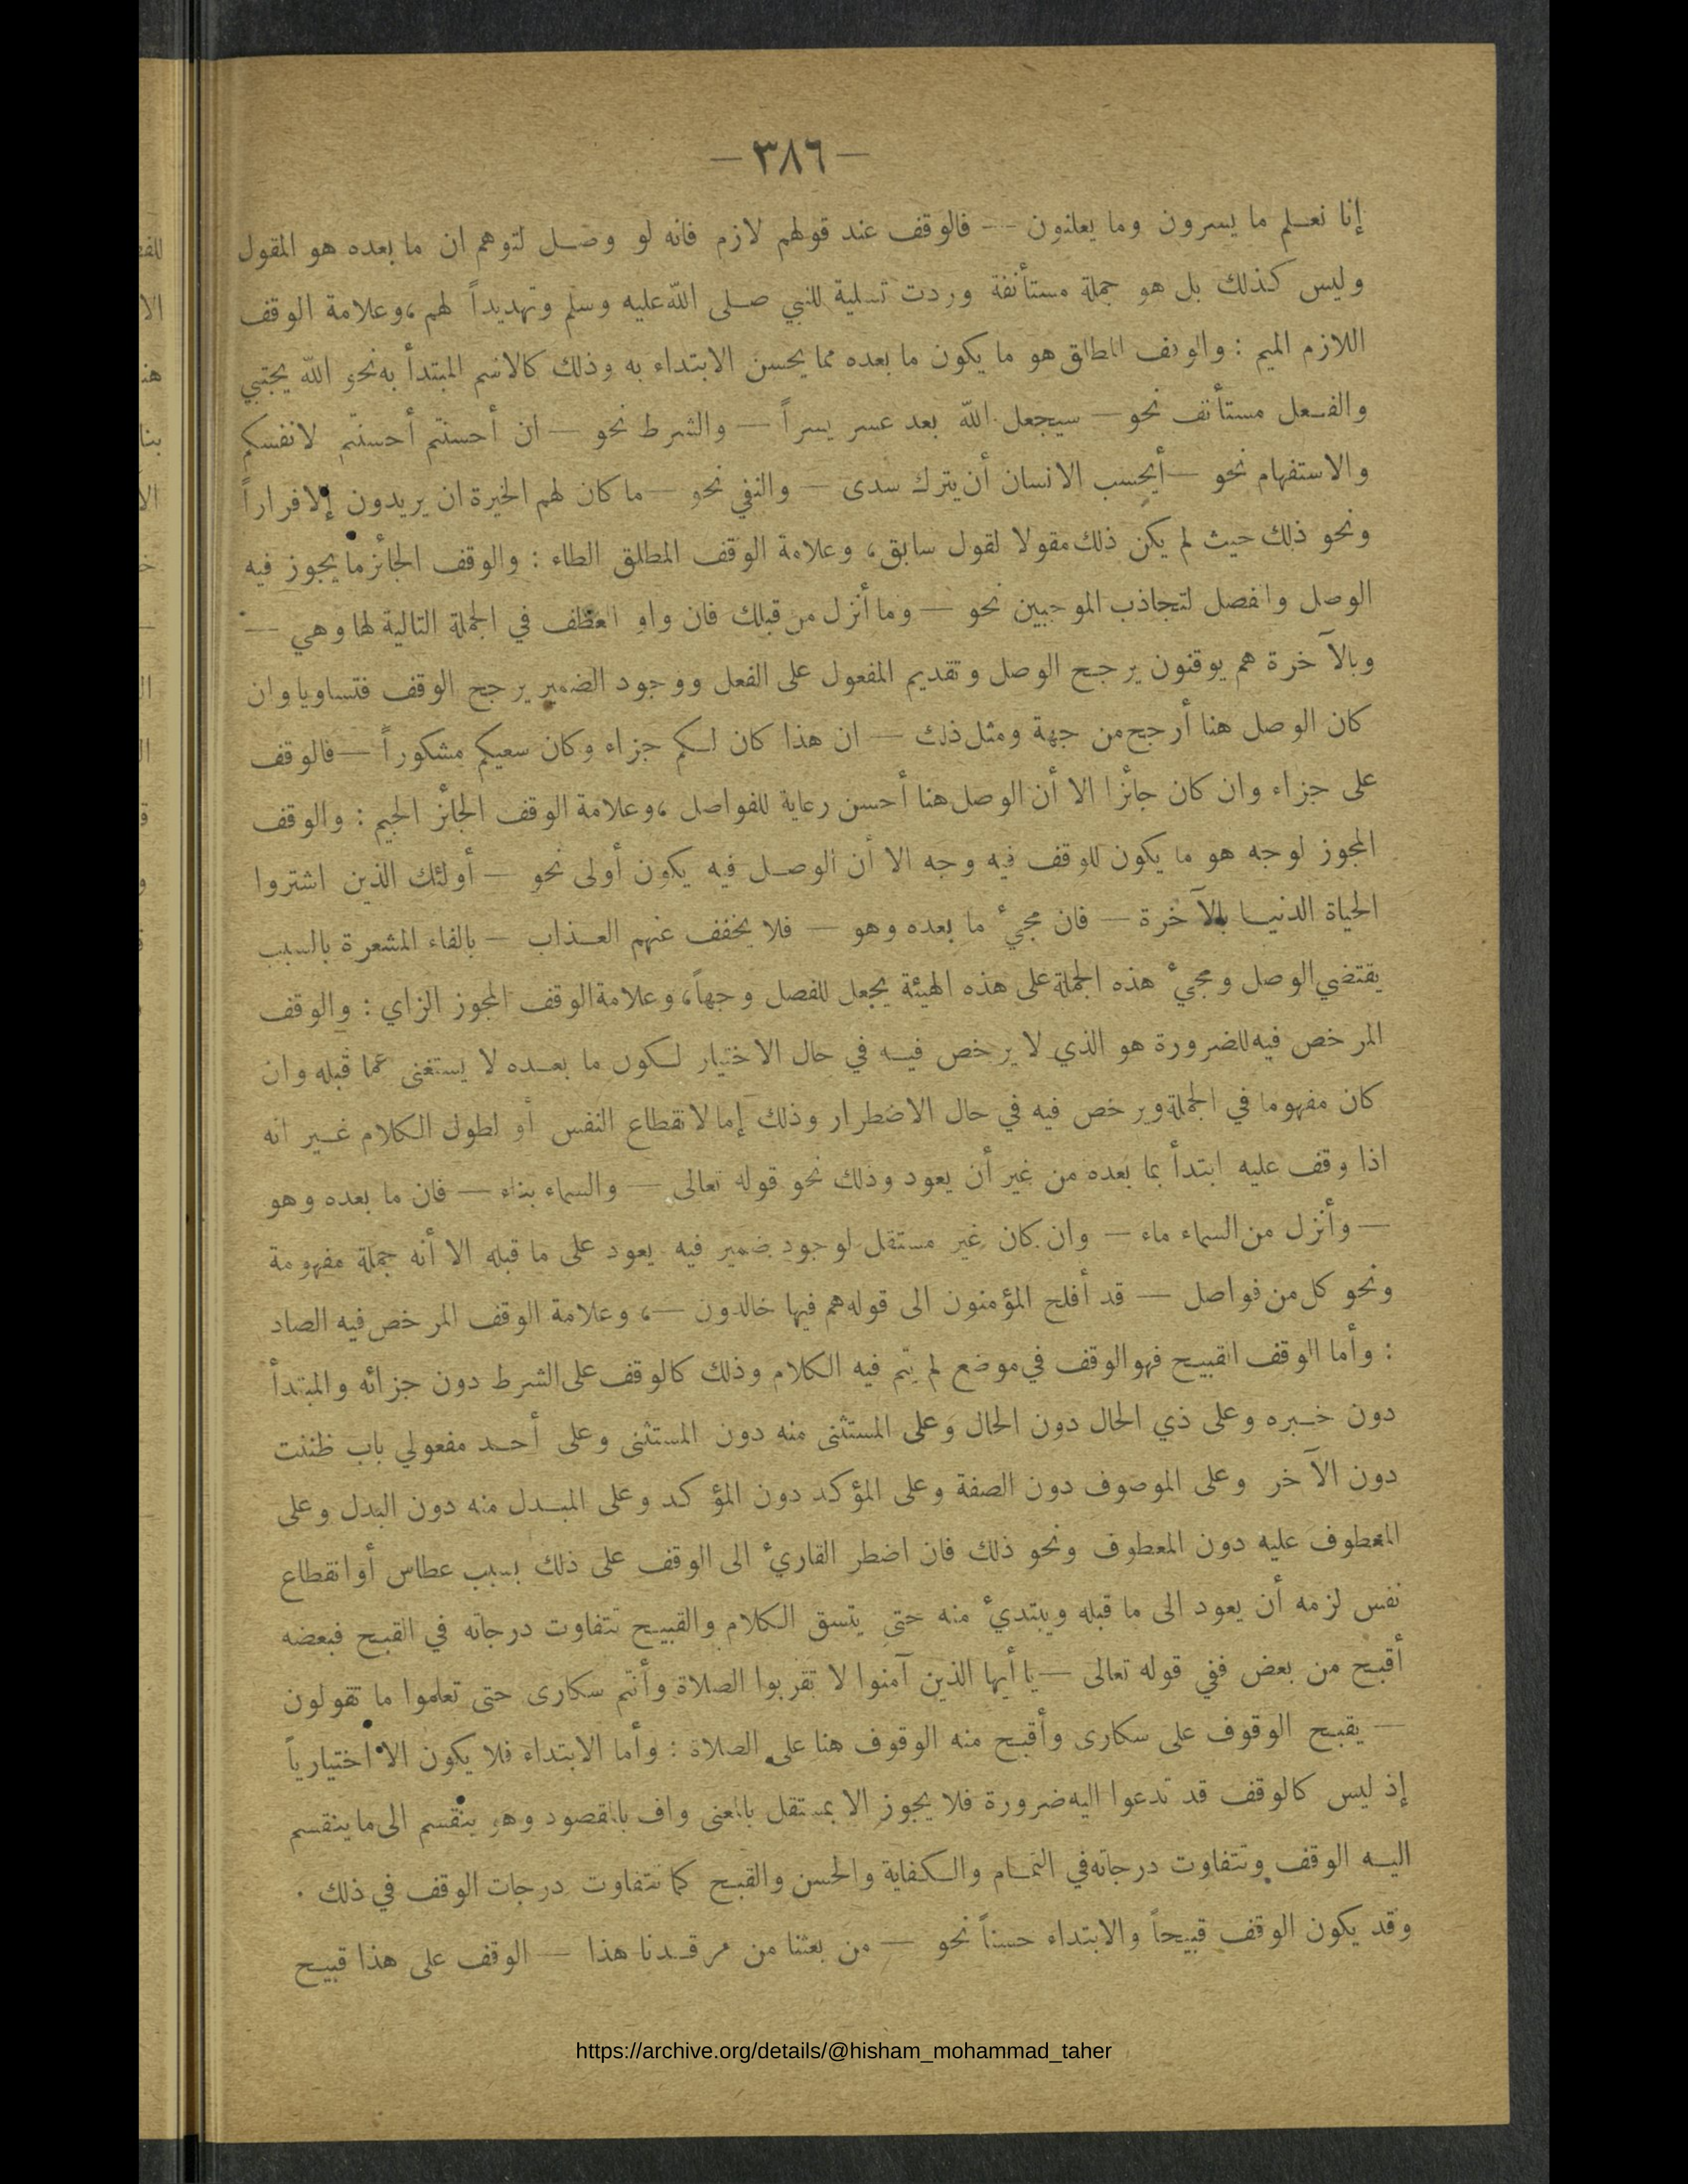 — ٣٨٦ —
إنا نعلم ما يسرون وما يعلنون -- فالوقف عند قولهم لازم فانه لو وصل لتوهم ان ما بعده هو المقول
وليس كذلك بل هو جملة مستأنفة وردت تسلية للنبي صلى الله عليه وسلم وتهديداً لهم ، وعلامة الوقف
اللازم الميم : والوقف المطلق هو ما يكون ما بعده مما يحسن الابتداء به وذلك كالاسم المبتدأ به نحو الله يجتبي
والفعل مستأنف نحو — سيجعل الله بعد عسر يسراً — والشرط نحو — ان أحسنتم أحسنتم لانفسكم
والاستفهام نحو — أيحسب الانسان أن يترك سدى — والنفي نحو — ما كان لهم الخيرة ان يريدون إلا فراراً
ونحو ذلك حيث لم يكن ذلك مقولا لقول سابق ، وعلامة الوقف المطلق الطاء : والوقف الجائز ما يجوز فيه
الوصل والفصل لتجاذب الموجبين نحو — وما أنزل من قبلك فان واو العطف في الجملة التالية لها وهي —
وبالآخرة هم يوقنون يرجح الوصل وتقديم المفعول على الفعل ووجود الضمير يرجح الوقف فتساويا وان
كان الوصل هنا أرجح من جهة ومثل ذلك — ان هذا كان لكم جزاء وكان سعيكم مشكوراً — فالوقف
على جزاء وان كان جائزا الا أن الوصل هنا أحسن رعاية للفواصل ، وعلامة الوقف الجائز الجيم : والوقف
المجوز لوجه هو ما يكون للوقف فيه وجه الا أن الوصل فيه يكون أولى نحو — أولئك الذين اشتروا
الحياة الدنيا بالآخرة — فان مجيء ما بعده وهو — فلا يخفف عنهم العذاب — بالفاء المشعرة بالسبب
يقتضي الوصل ومجيء هذه الجملة على هذه الهيئة يجعل للفصل وجهاً ، وعلامة الوقف المجوز الزاي : والوقف
المرخص فيه للضرورة هو الذي لا يرخص فيه في حال الاختيار لكون ما بعده لا يستغنى عما قبله وان
كان مفهوما في الجملة ويرخص فيه في حال الاضطرار وذلك إما لانقطاع النفس أو لطول الكلام غير انه
اذا وقف عليه ابتدأ بما بعده من غير أن يعود وذلك نحو قوله تعالى — والسماء بناء — فان ما بعده وهو
— وأنزل من السماء ماء — وان كان غير مستقل لوجود ضمير فيه يعود على ما قبله الا أنه جملة مفهومة
ونحو كل من فواصل — قد أفلح المؤمنون الى قوله هم فيها خالدون — ، وعلامة الوقف المرخص فيه الصاد
: وأما الوقف القبيح فهو الوقف في موضع لم يتم فيه الكلام وذلك كالوقف على الشرط دون جزائه والمبتدأ
دون خبره وعلى ذي الحال دون الحال وعلى المستثنى منه دون المستثنى وعلى أحد مفعولي باب ظننت
دون الآخر وعلى الموصوف دون الصفة وعلى المؤكد دون المؤكد وعلى المبدل منه دون البدل وعلى
المعطوف عليه دون المعطوف ونحو ذلك فان اضطر القاريء الى الوقف على ذلك بسبب عطاس أو انقطاع
نفس لزمه أن يعود الى ما قبله ويبتديء منه حتى يتسق الكلام والقبيح تتفاوت درجاته في القبح فبعضه
أقبح من بعض ففي قوله تعالى — يا أيها الذين آمنوا لا تقربوا الصلاة وأنتم سكارى حتى تعلموا ما تقولون
— يقبح الوقوف على سكارى وأقبح منه الوقوف هنا على الصلاة : وأما الابتداء فلا يكون الا اختيارياً
إذ ليس كالوقف قد تدعوا اليه ضرورة فلا يجوز الا بمستقل بالمعنى واف بالمقصود وهو ينقسم الى ما ينقسم
اليه الوقف وتتفاوت درجاته في التمام والكفاية والحسن والقبح كما تتفاوت درجات الوقف في ذلك .
وقد يكون الوقف قبيحاً والابتداء حسناً نحو — من بعثنا من مرقدنا هذا — الوقف على هذا قبيح
https://archive.org/details/@hisham_mohammad_taher